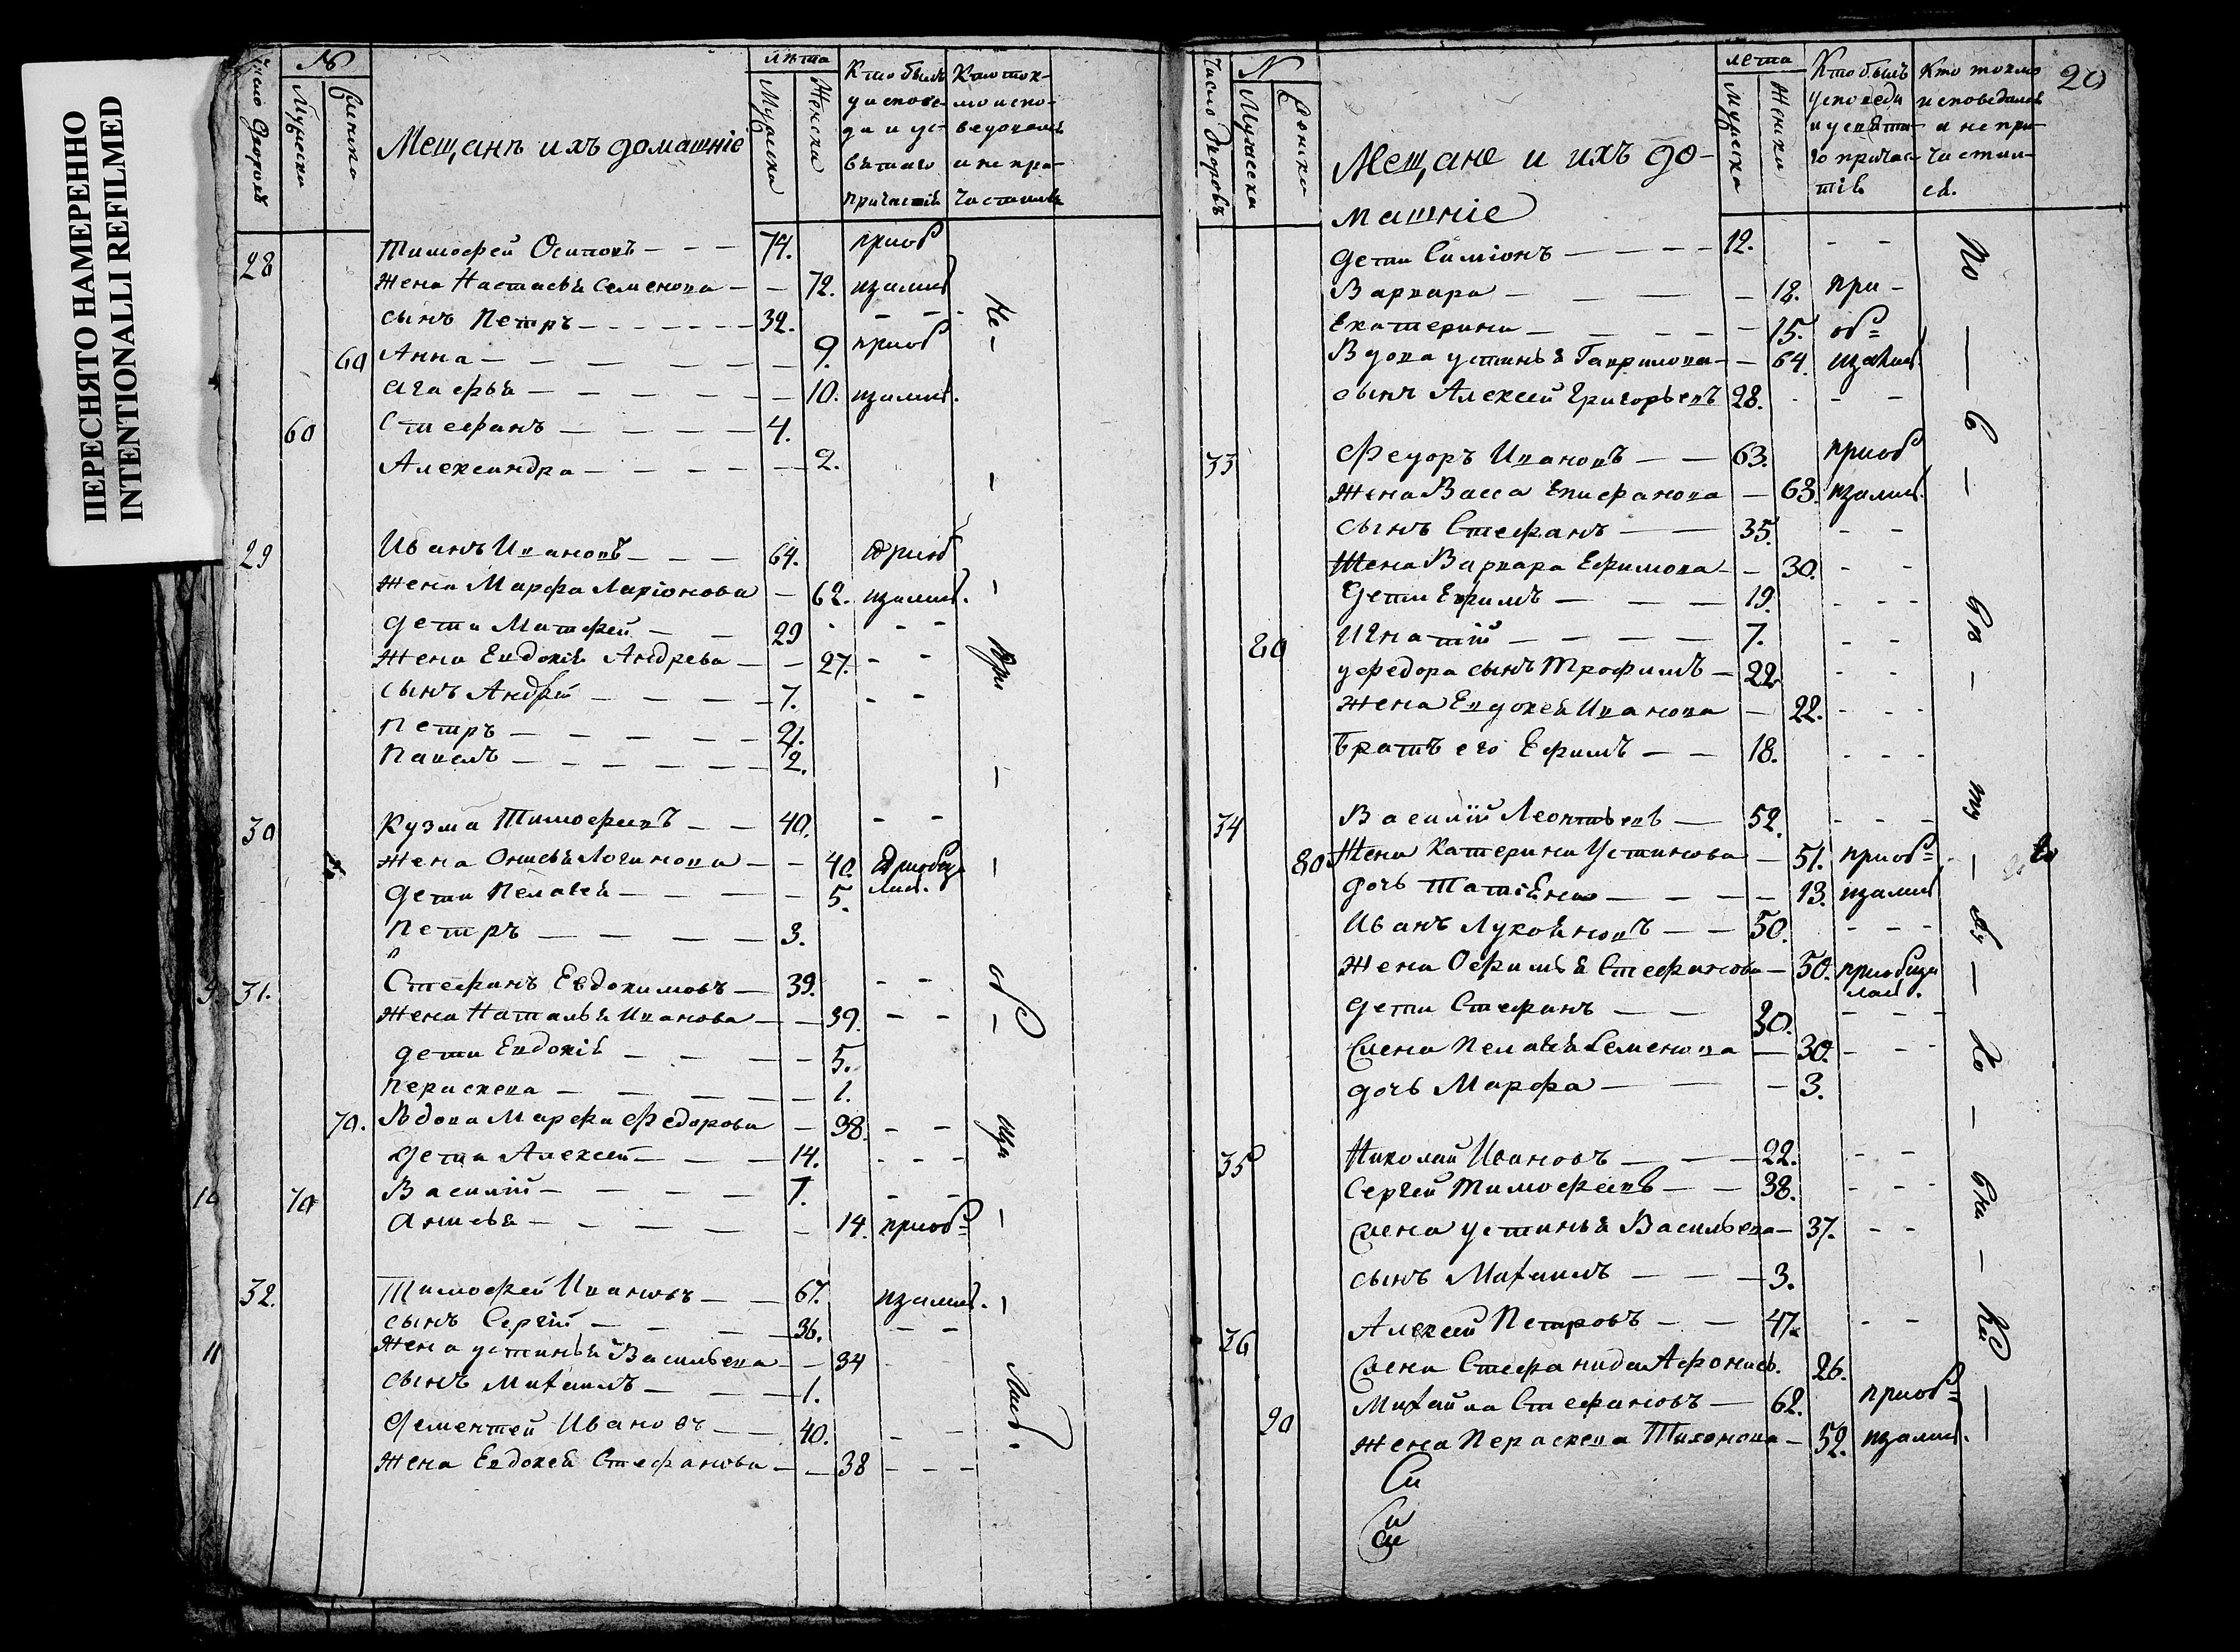 ПЕРЕСНЯТО НАМЕРЕННО
INTENTIONALLI REFILMED
Число дворовъ
№
Мужеска
Женска
Мещанъ ихъ домашніе
лѣта
Мужеска
Женска
Кто былъ у исповеди и у святаго причастія
Кто токмо исповедопалъ а не причастился
28 Тимофей Осиповъ — — — 74. приоб
жена Настасья Семенова — — 72. щалис
сынъ Петръ — — — 32. — —
60 Анна — — — 9. приоб
Агафья — — — 10. щалис.
60 Стефанъ — — — 4.
Александра — — — 2.
29 Иванъ Ивановъ — — — 64. приоб
жена Марфа Ларіонова — 62. щалис.
дети Матфей — — 29 — — —
жена Евдокія Андрева — — 27. — —
сынъ Андрей — — — 7. — —
Петръ — — — 21.
Павелъ — — — 2.
30 Кузма Тимофеевъ — — 40. — —
жена Онисья Логинова — — 40. приобща
дети Пелагея — — — 5. лис.
Петръ — — — 3.
9 31. Стефанъ Евдокимовъ — 39. — —
жена Наталья Иванова — — 39. — —
дети Евдокія — — — 5.
Пераскева — — — 1.
70. Вдова Марфа Федорова — 38. — —
дети Алексей — — — 14. — — —
10 70 Василій — — — 7. — —
Анисья — — — 14. приоб=
32. Тимофей Ивановъ — — 67. щалис.
сынъ Сергій — — — 36. — —
11 жена устинья Васильева — — 34
сынъ Михаилъ — — — 1.
Дементей Ивановъ — — 40. — —
жена Евдокея Стефанова — — 38 — — —
Не — при — об — ща — лис.
20
Число дворовъ
N
Мужеска
Женска
Мещане и ихъ до-
машніе
лета
Мужеска
Женска
Кто былъ у споведи и у святаго причастія
Кто токмо исповедался а не причастился.
дети Симіонъ — — — 12. — —
Варвара — — — 18. при-
Екатерина — — — 15. об=
Вдова устинья Гаврилова — — 64. щалис.
сынъ Алексей Григорьевъ 28. — — —
33 Федоръ Ивановъ — — 63. приоб
жена Васса Епифанова — 63. щалис.
сынъ Стефанъ — — 35. — —
Жена Варвара Ефимова — — 30. — —
Дети Ефимъ — — — 19. — — —
80 Игнатій — — — 7. — —
у федора сынъ Трофимъ — 22. — —
жена Евдокея Иванова — 22. — — —
Братъ его Ефимъ — — 18. — — —
34 Василій Леонтьевъ — 52. — — —
80 Жена Катерина Устинова — 51. приоб=
дочь Татіяна — — — 13. щалис
Иванъ Лукояновъ — — 50. — — —
жена Офимья Стефанова — 50. приобща
лис.
дети Стефанъ — — 30. — — —
жена Пелагея Семенова — 30. — — —
дочь Марфа — — — 3.
35 Николай Ивановъ — — — 22. — —
Сергей Тимофеевъ — — 38. — — —
жена устинья Васильева — 37. — —
сынъ Михаилъ — — — 3.
36 Алексей Петровъ — — 47. — —
жена Стефанида Афонась. 26.
Михайла Стефановъ — 62. приоб=
90 жена Пераскева Тихонова — 52. щалис.